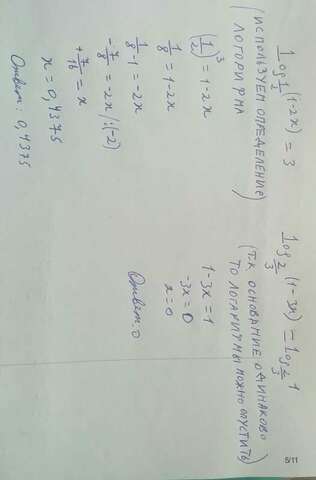 log 1/2 (1-2x) = 3
(ИСПОЛЬЗУЕМ ОПРЕДЕЛЕНИЕ
ЛОГОРИФМА)
(1/2)³ = 1-2x
1/8 = 1-2x
1/8 - 1 = -2x
-7/8 = -2x /:(-2)
+7/16 = x
x = 0,4375
Ответ: 0,4375
log 2/3 (1-3x) = log 2/3 1
(Т.К ОСНОВАНИЕ ОДИНАКОВО
ТО ЛОГАРИТМЫ МОЖНО ОПУСТИТЬ)
1-3x = 1
-3x = 0
x = 0
Ответ: 0
5/11